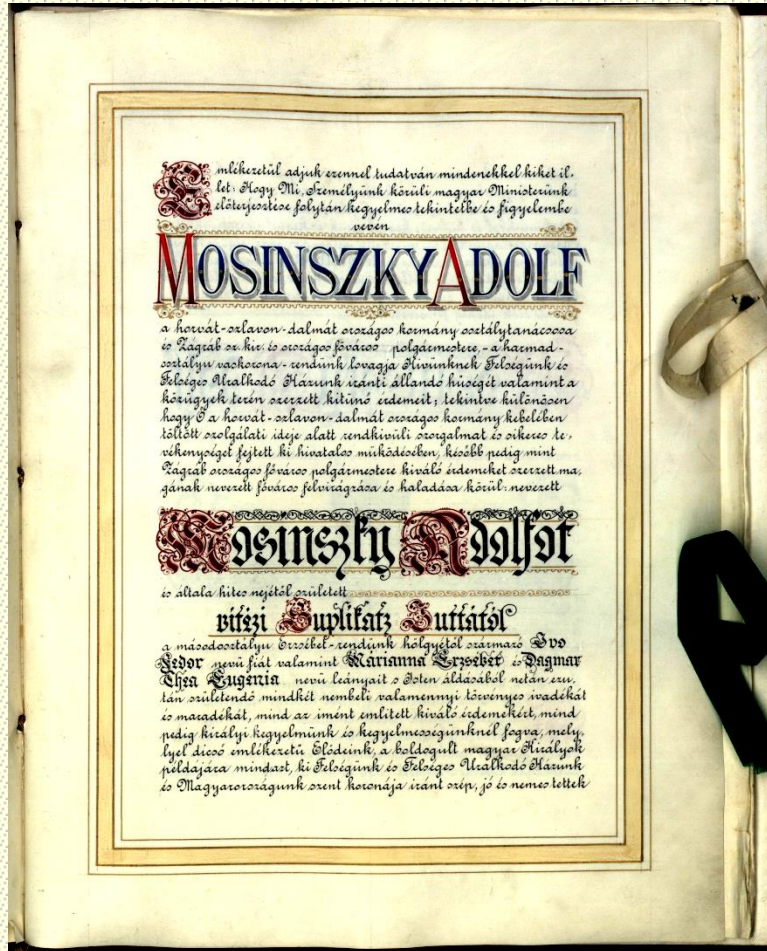 Emlékezetül adjuk ezennel tudatván mindenekkel kiket il-
let: Hogy Mi, Személyünk körüli magyar Ministerünk
előterjesztése folytán kegyelmes tekintetbe és figyelembe
vévén
MOSINSZKY ADOLF
a horvát-szlavon-dalmát országos kormány osztálytanácsosa
és Zágráb sz. kir. és országos főváros polgármestere, - a harmad-
osztályu vaskorona-rendünk lovagja Hivünknek Felségünk és
Felséges Uralkodó Házunk iránti állandó hűségét valamint a
közügyek terén szerzett kitünő érdemeit; tekintve különösen
hogy Ő a horvát-szlavon-dalmát országos kormány kebelében
töltött szolgálati ideje alatt rendkivüli szorgalmat és sikeres te-
vékenységet fejtett ki hivatalos működésében, később pedig mint
Zágráb országos főváros polgármestere kiváló érdemeket szerzett ma-
gának nevezett főváros felvirágzása és haladása körül: nevezett
Mosinszky Adolfot
és általa hites nejétől született
vitézi Suplikatz Juttától
a másodosztályu Erzsébet-rendünk hölgyétől származó Ivo
Fedor nevü fiát valamint Márianna Erzsébet és Dagmar
Thea Eugenia nevü leányait s Isten áldásából netán ezu-
tán születendő mindkét nembeli valamennyi törvényes ivadékát
és maradékát, mind az imént emlitett kiváló érdemekért, mind
pedig királyi kegyelmünk és kegyelmességünknél fogva, mely-
lyel dicső emlékezetü Elődeink, a boldogult magyar Királyok
példájára mindazt, ki Felségünk és Felséges Uralkodó Házunk
és Magyarországunk szent koronája iránt szép, jó és nemes tettek